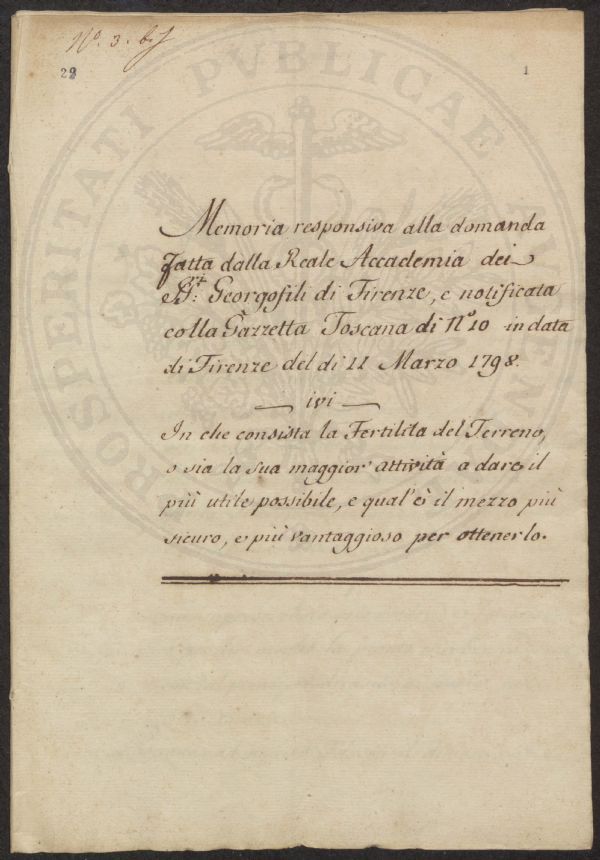 Nº. 3.
28
1
PROSPERITATI PVBLICAE
Memoria responsiva alla domanda
fatta dalla Reale Accademia dei
Georgofili di Firenze, e notificata
colla Gazzetta Toscana di Nº 10 in data
di Firenze del dì 11 Marzo 1798.
— ivi —
In che consista la Fertilità del Terreno,
o sia la sua maggior attività a dare il
più utile possibile, e qual'è il mezzo più
sicuro, e più vantaggioso per ottenerlo.